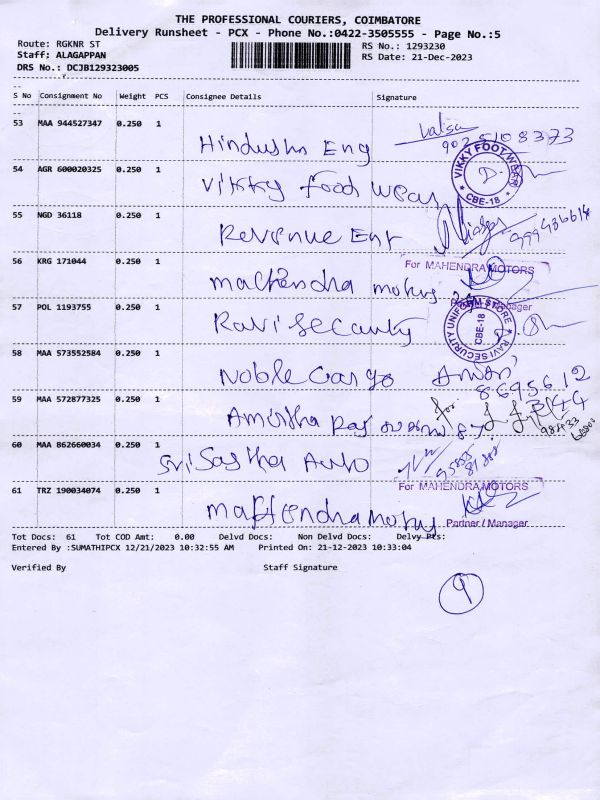 THE PROFESSIONAL COURIERS, COIMBATORE
Delivery Runsheet - PCX - Phone No.:0422-3505555 - Page No.:5
Route: RGKNR ST
RS No.: 1293230
Staff; ALAGAPPAN
RS Date: 21-Dec-2023
DRS No.: DCJB129323005
S No Consignment No Weight PCS Consignee Details Signature
53 MAA 944527347 0.250 1
Hindustn Eng
54 AGR 600020325 0.250 1
Vikky food wear
VIKKY FOOT WEAR
CBE-18
55 NGD 36118 0.250 1
Revenue Enr
56 KRG 171044 0.250 1
For MAHENDRA MOTORS
Manager
57 POL 1193755 0.250 1
Ravi Security
RAVI SECURITY UNIFORM STORE
CBE-18
58 MAA 573552584 0.250 1
Noble Cargo
8695612
59 MAA 572877325 0.250 1
Amirtha
for
60 MAA 862660034 0.250 1
Sri Sastha Auto
61 TRZ 190034074 0.250 1
For MAHENDRA MOTORS
Partner / Manager
Tot Docs: 61 Tot COD Amt: 0.00 Delvd Docs: Non Delvd Docs: Delvy Pts:
Entered By :SUMATHIPCX 12/21/2023 10:32:55 AM Printed On: 21-12-2023 10:33:04
Verified By Staff Signature
9